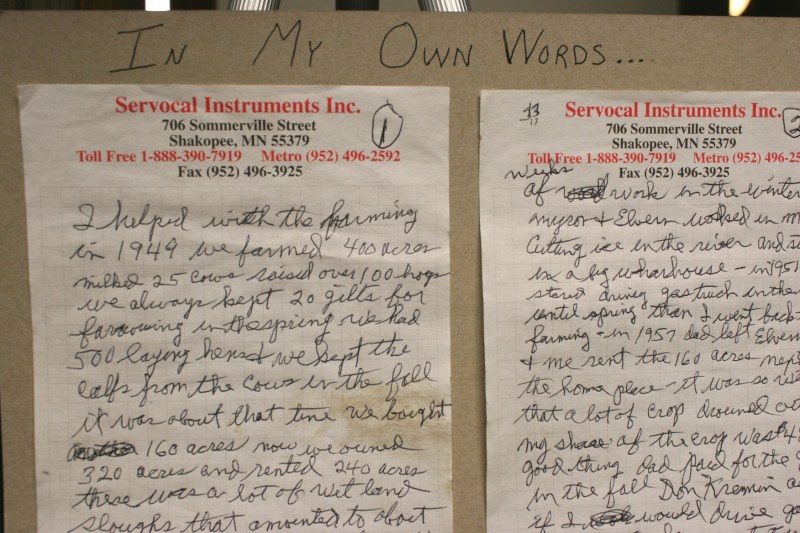 In My Own Words....
Servocal Instruments Inc.
706 Sommerville Street
Shakopee, MN 55379
Toll Free 1-888-390-7919 Metro (952) 496-2592
Fax (952) 496-3925
1
I helped with the farming
in 1949 we farmed 400 acres
milked 25 cows raised over 100 hogs
we always kept 20 gilts for
farrowing in the spring we had
500 laying hens & we kept the
calfs from the cows in the fall
it was about that time we bought
160 acres now we owned
320 acres and rented 240 acres
there was a lot of wet land
sloughs that amounted to about
Servocal Instruments Inc.
706 Sommerville Street
Shakopee, MN 55379
Toll Free 1-888-390-7919 Metro (952) 496-25
Fax (952) 496-3925
2
13
weeks
of work in the winter
myron & Elvern worked in
Cutting ice in the river and
in a big wharhouse - in 1951
driving gas truck in the
until spring than I went back
farming - in 1957 dad left Elvern
& me rent the 160 acres
the home place - it was so
that a lot of crop drouned
my share of the crop was
good thing dad paid for the
in the fall Don Kremin
if I would drive